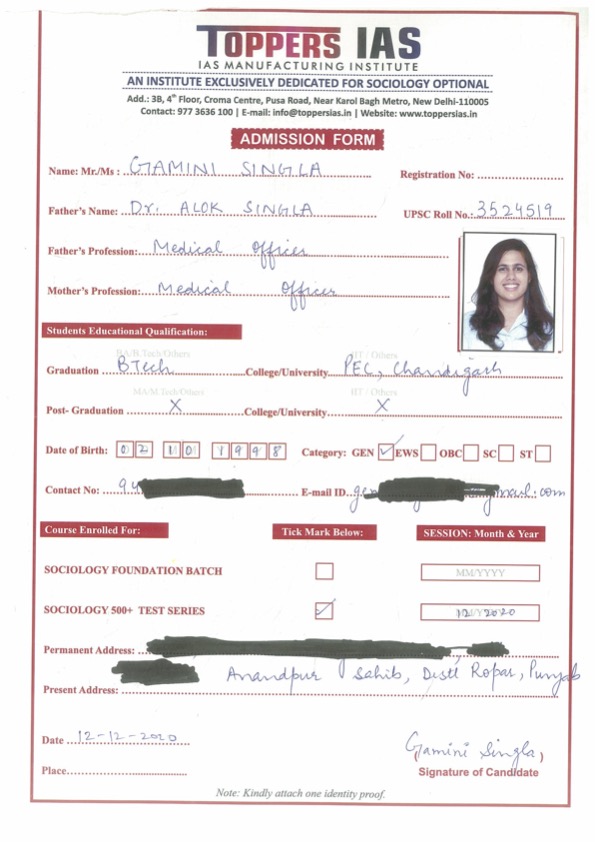 TOPPERS IAS
IAS MANUFACTURING INSTITUTE
AN INSTITUTE EXCLUSIVELY DEDICATED FOR SOCIOLOGY OPTIONAL
Add.: 3B, 4th Floor, Croma Centre, Pusa Road, Near Karol Bagh Metro, New Delhi-110005
Contact: 977 3636 100 | E-mail: info@toppersias.in | Website: www.toppersias.in
ADMISSION FORM
Name: Mr./Ms : GAMINI SINGLA Registration No:
Father's Name: Dr. ALOK SINGLA UPSC Roll No.: 3524519
Father's Profession: Medical Officer
Mother's Profession: Medical Officer
Students Educational Qualification:
BA/B.Tech/Others IIT / Others
Graduation BTech College/University PEC, Chandigarh
MA/M.Tech/Others IIT / Others
Post- Graduation X College/University X
Date of Birth: 02 10 1998 Category: GEN ✓ EWS OBC SC ST
Contact No: E-mail ID
Course Enrolled For: Tick Mark Below: SESSION: Month & Year
SOCIOLOGY FOUNDATION BATCH MM/YYYY
SOCIOLOGY 500+ TEST SERIES ✓ 12 2020
Permanent Address:
Anandpur Sahib, Distt Ropar, Punjab
Present Address:
Date 12-12-2020 Gamini Singla
Place Signature of Candidate
Note: Kindly attach one identity proof.